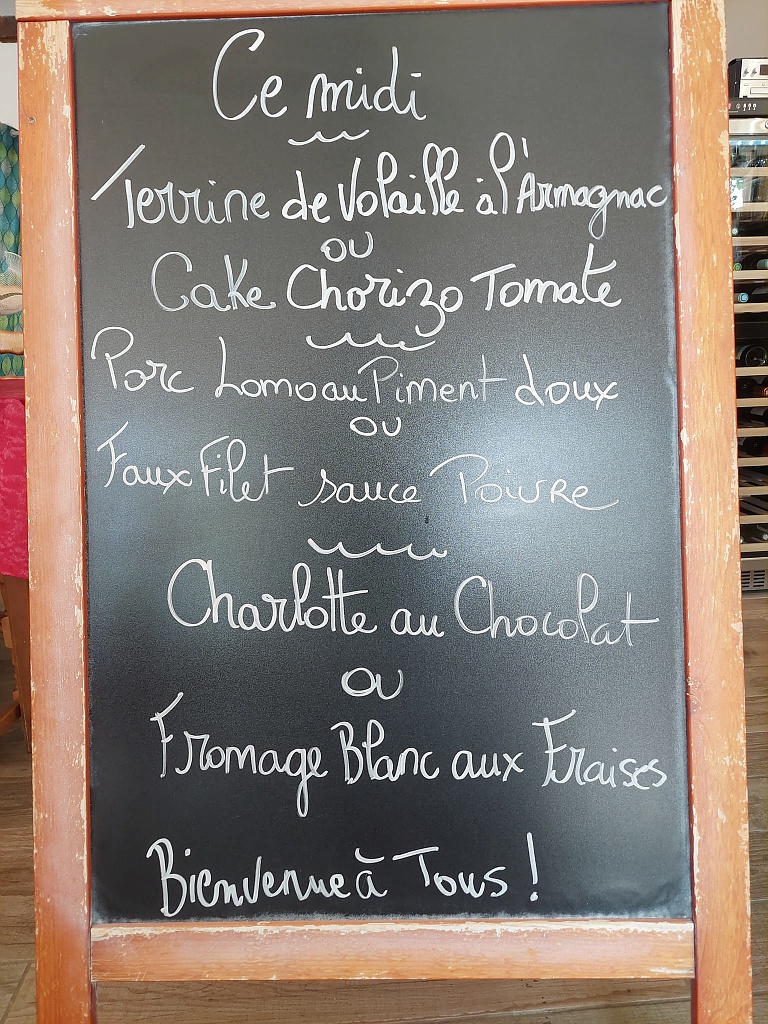 Ce midi
Terrine de Volaille à l'Armagnac
ou
Cake Chorizo Tomate
Porc Lomo au Piment doux
ou
Faux Filet sauce Poivre
Charlotte au Chocolat
ou
Fromage Blanc aux Fraises
Bienvenue à Tous !